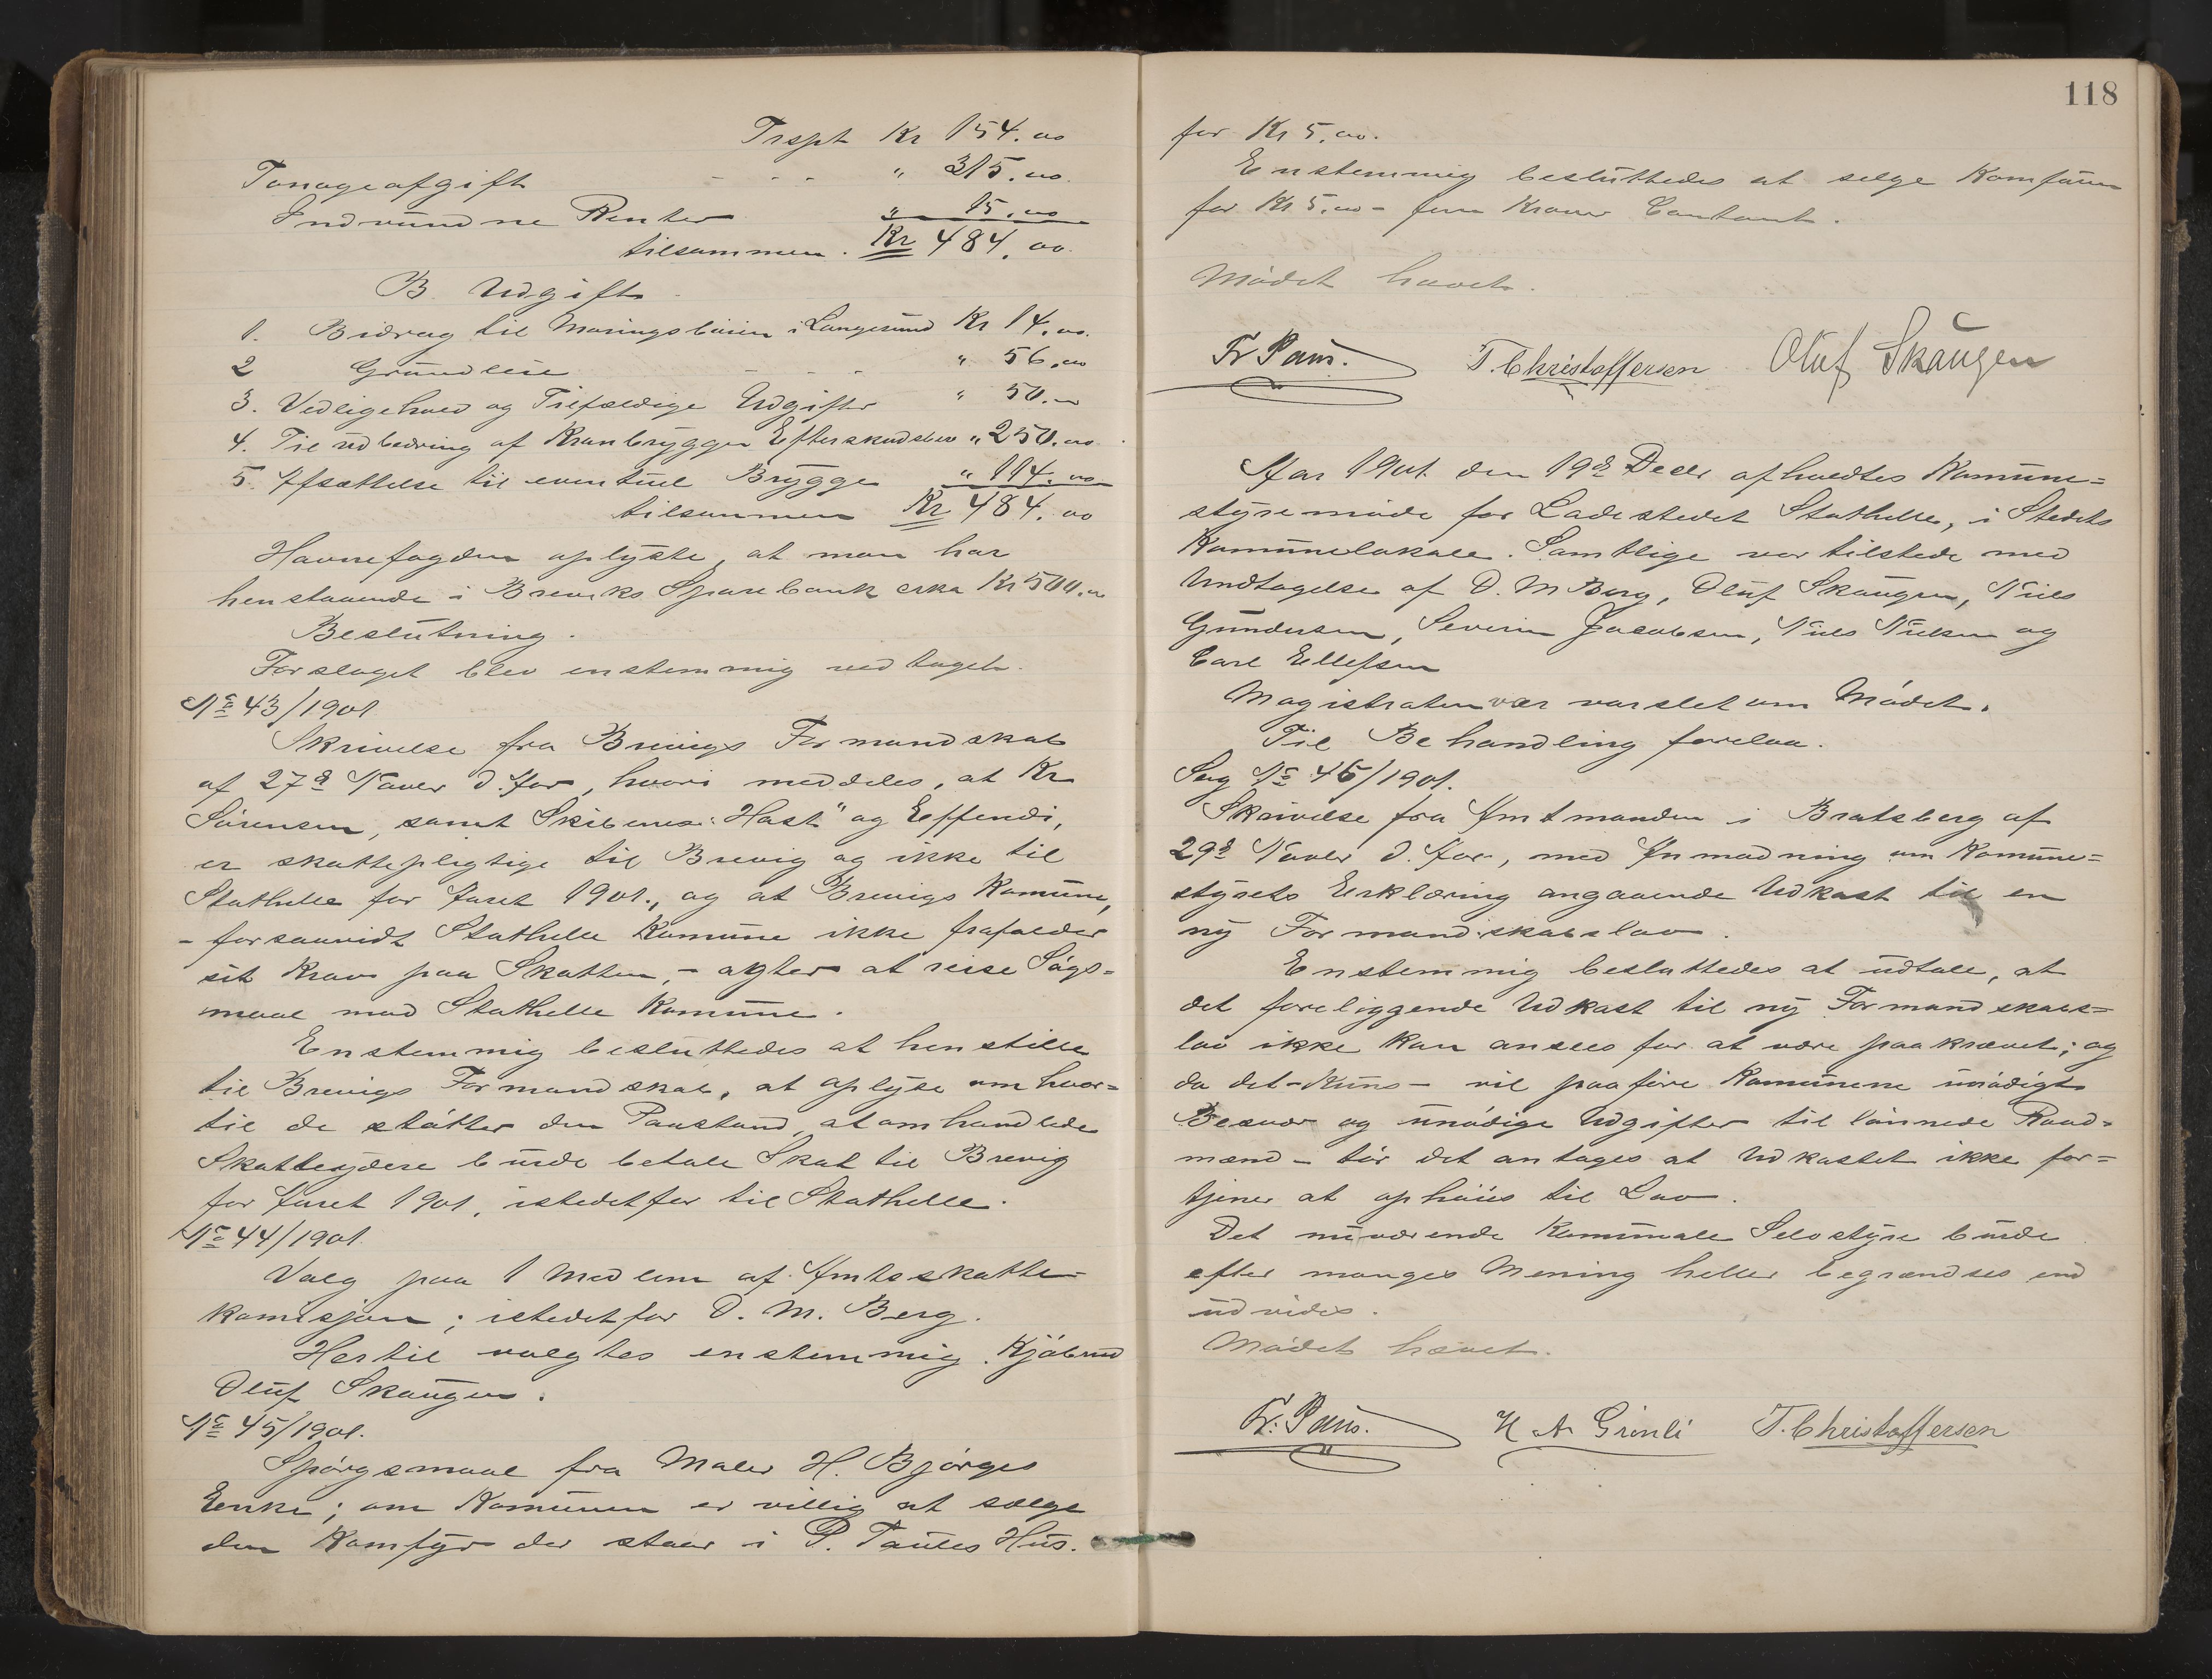 Trspt Kr 154.00
Tonageafgift - - - " 315.00
Indvundne Renter " 15.00
tilsammen. Kr 484.00
B. Udgift
1. Bidrag til Maaringsbøien i Langesund Kr 14.00
2 Grundleie - - - " 56.00
3. Vedligehold og Tilfældige Udgifter " 50.00
4. Til udbedring af Kranbryggen Efterskudsvis " 250.00
5. Afsættelse til eventuel Brygge " 114.00
tilsammen Kr 484.00
Havnefogden oplyste, at man har
henstaaende i Breviks Sparebank cirka Kr 500.00
Beslutning.
Forslaget blev enstemmig vedtaget.
No 43/1901
Skrivelse fra Brevigs Formandskab
af 27de Novbr d. Aar, hvori meddeles, at Kr
Sørensen, samt Skibene "Hast" og Effendi,
er skattepligtige til Brevig og ikke til
Stathelle for Aaret 1901., og at Brevigs Komune,
- forsaavidt Stathelle Komune ikke frafalder
sit Krav paa Skatten, - agter at reise Søgs=
maal mod Stathelle Komune.
Enstemmig besluttedes at henstille
til Brevigs Formandskab, at oplyse om hvor=
til de støtter den Paastand, at omhandlede
Skatteydere burde betale Skat til Brevig
for Aaret 1901, istedetfor til Stathelle.
No 44/1901
Valg paa 1 Medlem af Amtsskatte-
komisjon; istedetfor D. M. Berg.
Hertil valgtes enstemmig Kjøbmd
Oluf Skaugen.
No 45/1901.
Spørgsmaal fra Maler H. Bjørges
Enke; om Komunen er villig at sælge
den Komfyr der staar i P. Paules Hus.
118
for Kr 5.00.
Enstemmig besluttedes at selge Komfuren
for Kr 5.00 - fem Kroner Contant.
Mødet hævet.
Fr Paus. T. Christoffersen Oluf Skaugen
Aar 1901 den 19de Decbr afholdtes Komune=
styremøde for Ladestedet Stathelle, i Stedets
Komunelokale. Samtlige var tilstede med
Undtagelse af D. M Berg, Oluf Skaugen, Niels
Gundersen, Severin Jacobsen, Niels Nielsen og
Carl Ellefsen
Magistraten var varslet om Mødet.
Til Behandling forelaa.
Sag No 46/1901.
Skrivelse fra Amtmanden i Bratsberg af
29de Novbr d. Aar, med Anmodning om Komune=
styrets Erklæring angaaende Udkast til en
ny Formandskabslov.
Enstemmig besluttedes at udtale, at
det foreliggende Udkast til ny Formandskabs=
lov ikke kan ansees for at være paakrævet; og
da det - Kuns - vil paaføre Komunene unødigt
Besvær og unødige Udgifter til lønnede Raad=
mænd - tør det antages at Udkastet ikke for=
tjener at ophøies til Lov.
Det nuværende Komunale Selvstyre burde
efter manges Mening heller begrændses end
udvides.
Mødet hævet.
Fr. Paus. H A Grønli T. Christoffersen